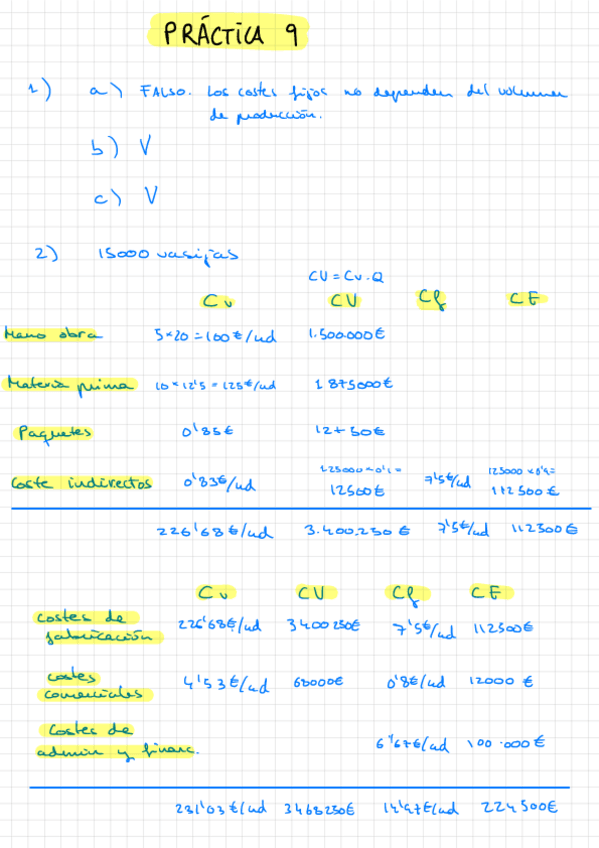 PRÁCTICA 9
1) a) FALSO. Los costes fijos no dependen del volumen
de producción.
b) V
c) V
2) 15000 vasijas
CV = Cv · Q
Cv CV Cf CF
Mano obra 5 × 20 = 100 €/ud 1.500.000 €
Materia prima 10 × 12'5 = 125 €/ud 1 875000 €
Paquetes 0'85 € 12750 €
Coste indirectos 0'83 €/ud 125000 × 0'1 = 12500 € 7'5 €/ud 125000 × 0'9 = 112 500 €
226'68 €/ud 3.400.250 € 7'5 €/ud 112500 €
Cv CV Cf CF
Costes de
fabricación 226'68 €/ud 3400250 € 7'5 €/ud 112500 €
Costes
comerciales 4'53 €/ud 68000 € 0'8 €/ud 12000 €
Costes de
admin y financ. 6'67 €/ud 100.000 €
231'03 €/ud 3468250 € 14'97 €/ud 224500 €